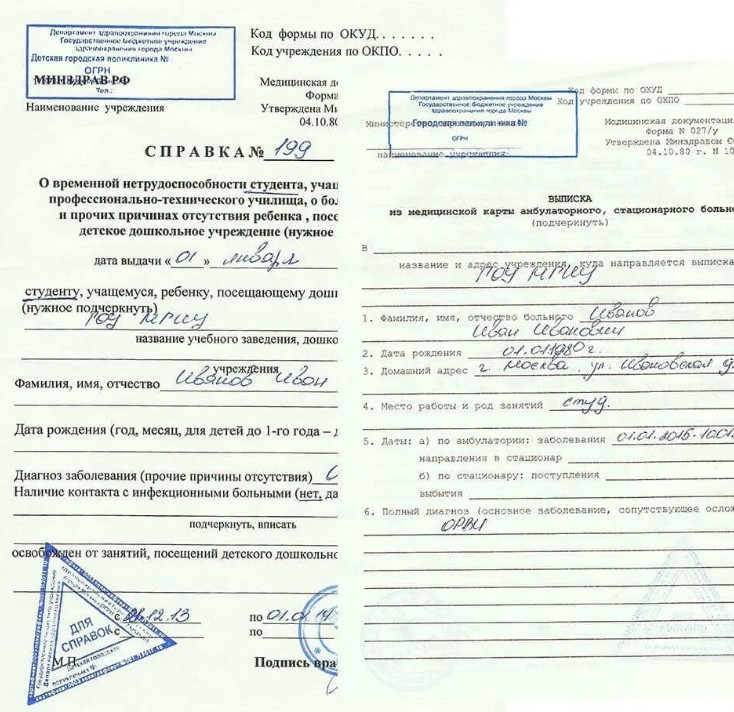 Департамент здравоохранения города Москвы
Государственное бюджетное учреждение
здравоохранения города Москвы
Детская городская поликлиника №
ОГРН
МИНЗДРАВ РФ
Тел.:
Наименование учреждения
Код формы по ОКУД. . . . . .
Код учреждения по ОКПО. . . . .
Медицинская до
Форма
Утверждена Ми
04.10.80
СПРАВКА № 199
О временной нетрудоспособности студента, учащ
профессионально-технического училища, о бол
и прочих причинах отсутствия ребенка , посе
детское дошкольное учреждение (нужное
дата выдачи « 01 » января
студенту, учащемуся, ребенку, посещающему дош
(нужное подчеркнуть)
ГОУ МГИУ
название учебного заведения, дошко
учреждения
Фамилия, имя, отчество Иванов Иван
Дата рождения (год, месяц, для детей до 1-го года – д
Диагноз заболевания (прочие причины отсутствия) О
Наличие контакта с инфекционными больными (нет, да
подчеркнуть, вписать
освобожден от занятий, посещений детского дошкольно
с 12.13 по 01.0 14
с по
ДЛЯ
СПРАВОК
М.П.
Подпись вра
Код формы по ОКУД
Код учреждения по ОКПО
Департамент здравоохранения города Москвы
Государственное бюджетное учреждение
здравоохранения города Москвы
Городская поликлиника №
ОГРН
Министерс
наименование учреждения
Медицинская документаци
Форма N 027/у
Утверждена Минздравом СС
04.10.80 г. N 10
ВЫПИСКА
из медицинской карты амбулаторного, стационарного больно
(подчеркнуть)
В
название и адрес учреждения, куда направляется выписка
ГОУ МГИУ
1. Фамилия, имя, отчество больного Иванов
Иван Иванович
2. Дата рождения 01.01.1980г.
3. Домашний адрес г. Москва, ул. Ивановская д.
4. Место работы и род занятий студ.
5. Даты: а) по амбулатории: заболевания 01.01.2015-10.01.
направления в стационар
б) по стационару: поступления
выбытия
6. Полный диагноз (основное заболевание, сопутствующее ослож
ОРВИ